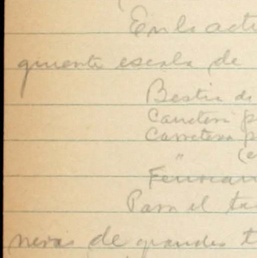 En la acti
guiente escala de
Bestia de
Carreten p
Carretera p
" (e
Ferrocarr
Para el tra
neras de grandes t